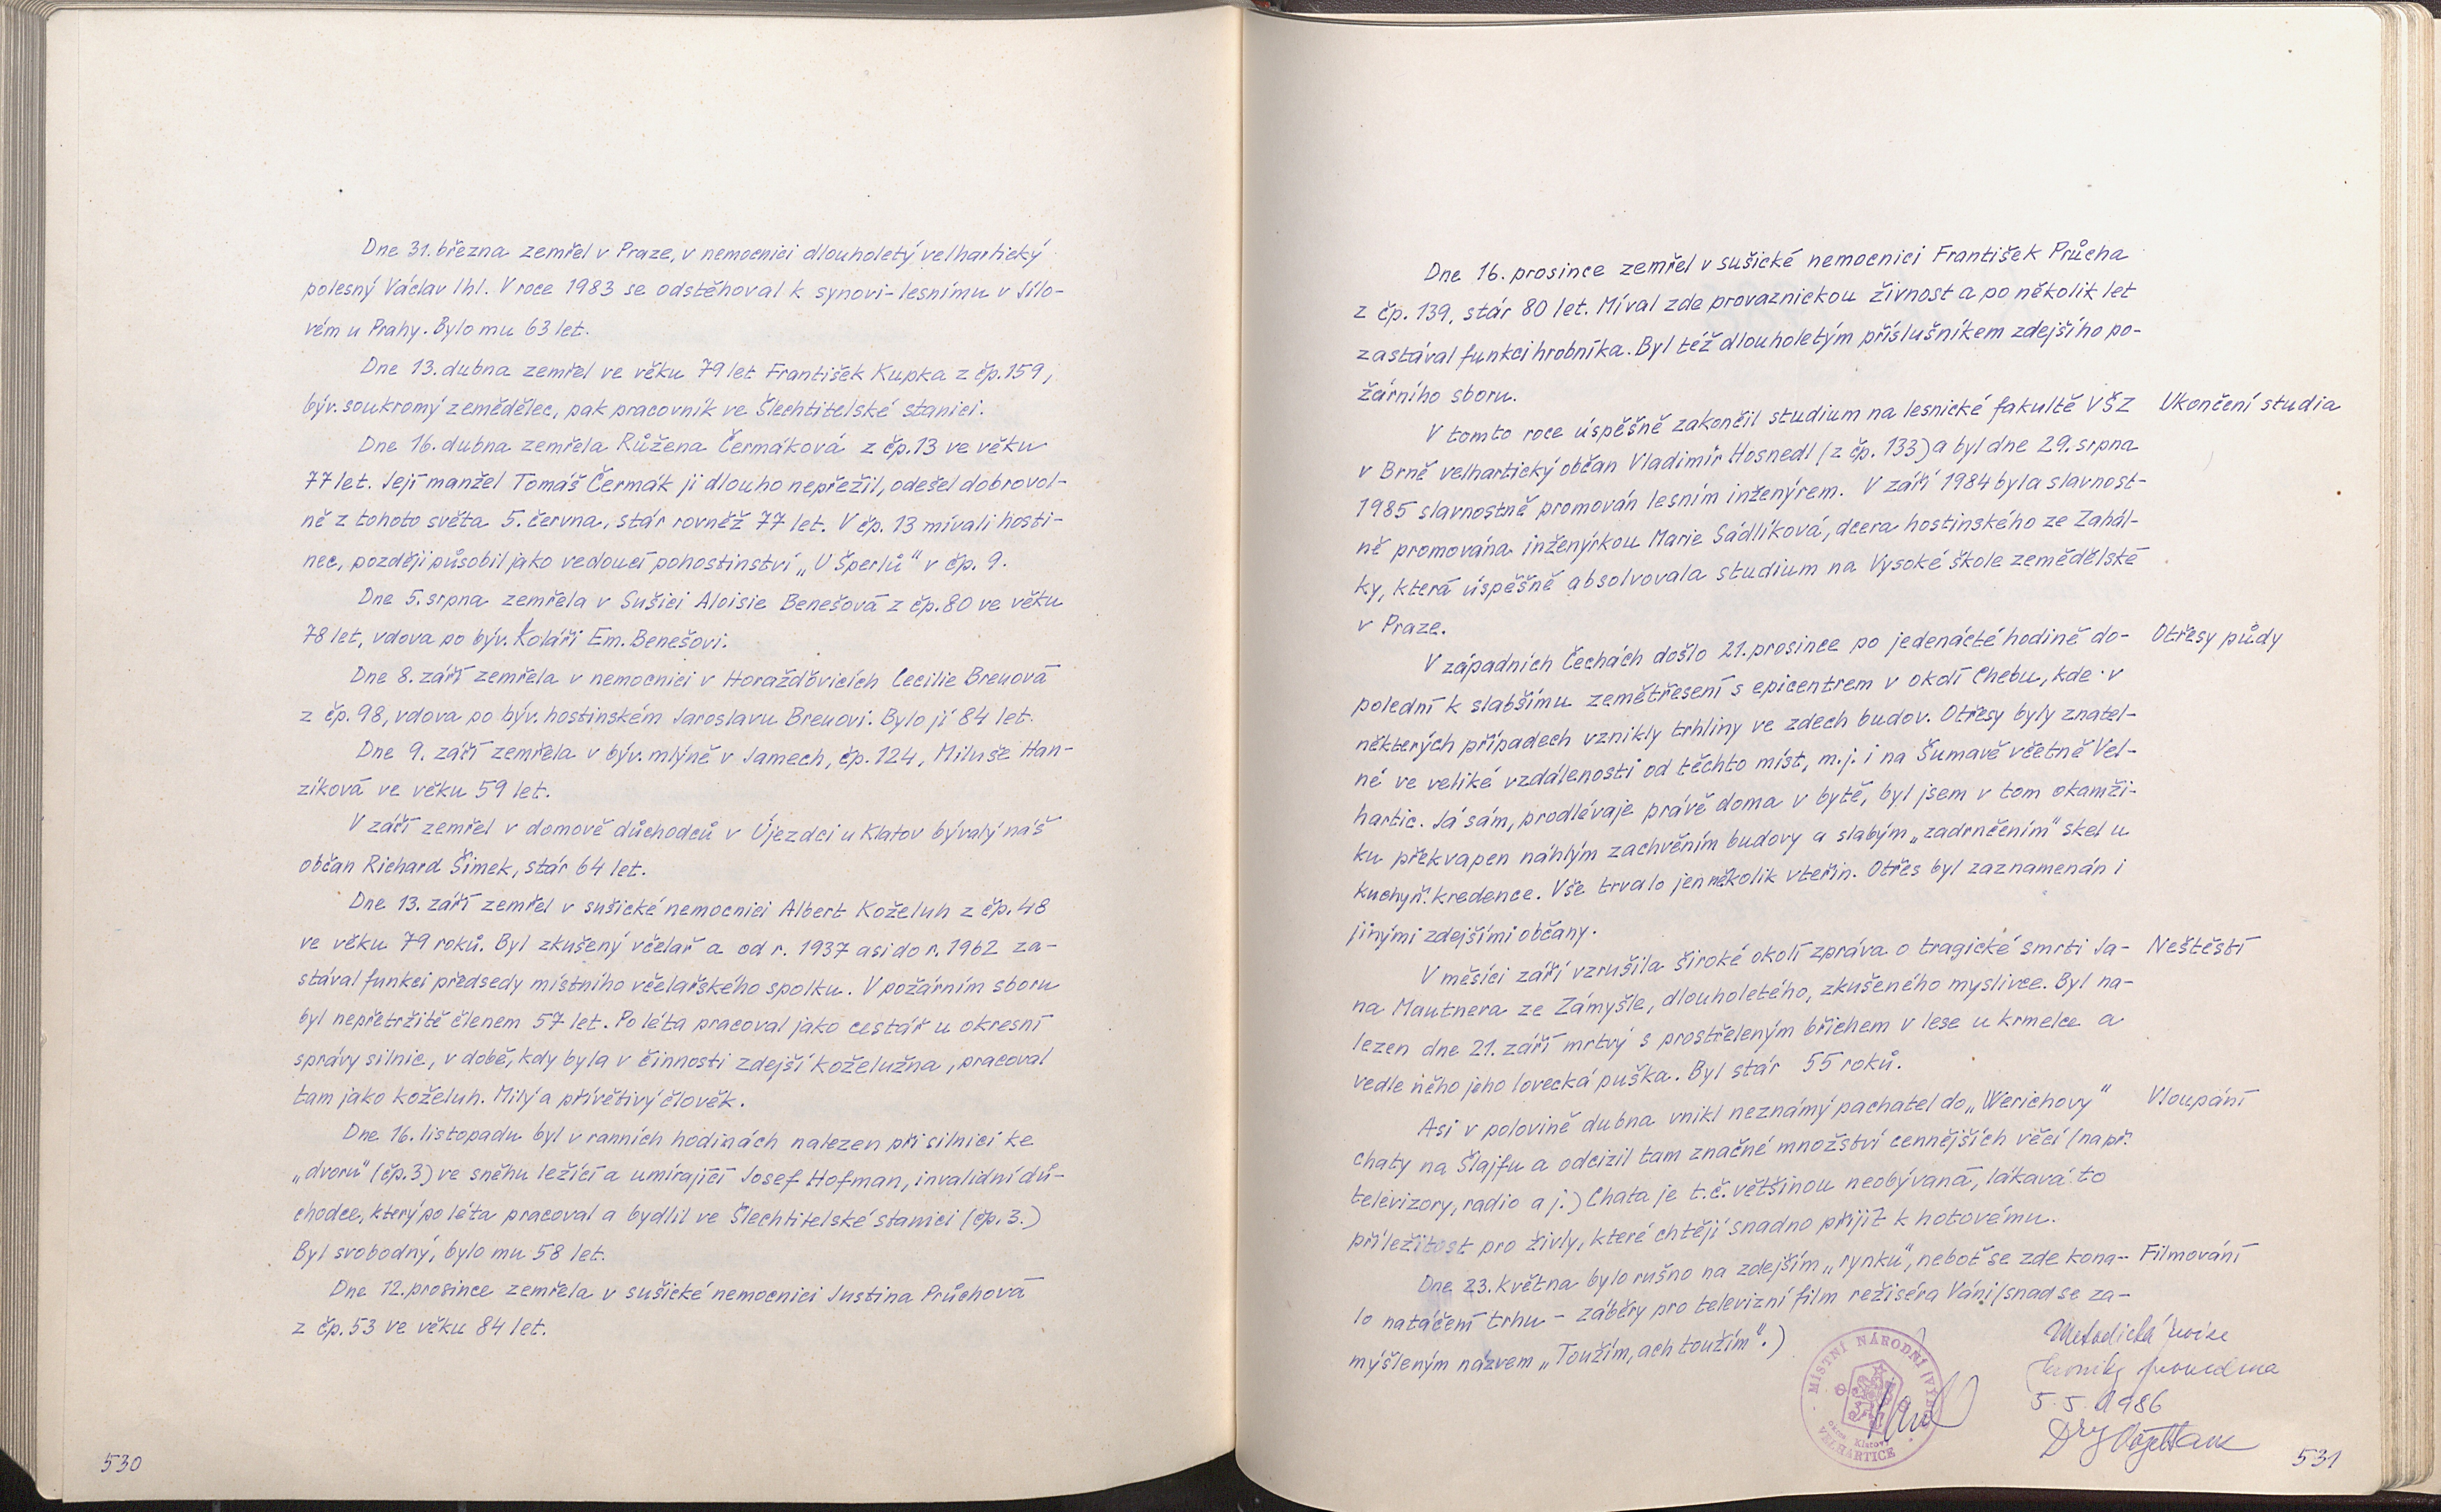 Dne 31. března zemřel v Praze, v nemocnici dlouholetý velhartický
polesný Václav Ihl. V roce 1983 se odstěhoval k synovi-lesnímu v Jílo-
vém u Prahy. Bylo mu 63 let.
Dne 13. dubna zemřel ve věku 79 let František Kupka z čp. 159,
býv. soukromý zemědělec, pak pracovník ve Šlechtitelské stanici.
Dne 16. dubna zemřela Růžena Čermáková z čp. 13 ve věku
77 let. Její manžel Tomáš Čermák ji dlouho nepřežil, odešel dobrovol-
ně z tohoto světa 5. června, stár rovněž 77 let. V čp. 13 mívali hosti-
nec, později působil jako vedoucí pohostinství „U Šperlů" v čp. 9.
Dne 5. srpna zemřela v Sušici Aloisie Benešová z čp. 80 ve věku
78 let, vdova po býv. koláři Em. Benešovi.
Dne 8. září zemřela v nemocnici v Horažďovicích Cecilie Breuová
z čp. 98, vdova po býv. hostinském Jaroslavu Breuovi. Bylo jí 84 let.
Dne 9. září zemřela v býv. mlýně v Jamech, čp. 124, Miluše Han-
zíková ve věku 59 let.
V září zemřel v domově důchodců v Újezdci u Klatov bývalý náš
občan Richard Šimek, stár 64 let.
Dne 13. září zemřel v sušické nemocnici Albert Koželuh z čp. 48
ve věku 79 roků. Byl zkušený včelař a od r. 1937 asi do r. 1962 za-
stával funkci předsedy místního včelařského spolku. V požárním sboru
byl nepřetržitě členem 57 let. Po léta pracoval jako cestář u okresní
správy silnic, v době, kdy byla v činnosti zdejší koželužna, pracoval
tam jako koželuh. Milý a přívětivý člověk.
Dne 16. listopadu byl v ranních hodinách nalezen při silnici ke
„dvoru" (čp. 3) ve sněhu ležící a umírající Josef Hofman, invalidní dů-
chodce, který po léta pracoval a bydlil ve Šlechtitelské stanici (čp. 3.)
Byl svobodný, bylo mu 58 let.
Dne 12. prosince zemřela v sušické nemocnici Justina Průchová
z čp. 53 ve věku 84 let.
530
Dne 16. prosince zemřel v sušické nemocnici František Průcha
z čp. 139, stár 80 let. Míval zde provaznickou živnost a po několik let
zastával funkci hrobníka. Byl též dlouholetým příslušníkem zdejšího po-
žárního sboru.
V tomto roce úspěšně zakončil studium na lesnické fakultě VŠZ Ukončení studia
v Brně velhartický občan Vladimír Hosnedl (z čp. 133) a byl dne 29. srpna
1985 slavnostně promován lesním inženýrem. V září 1984 byla slavnost-
ně promována inženýrkou Marie Sádlíková, dcera hostinského ze Zahál-
ky, která úspěšně absolvovala studium na Vysoké škole zemědělské
v Praze.
V západních Čechách došlo 21. prosince po jedenácté hodině do- Otřesy půdy
polední k slabšímu zemětřesení s epicentrem v okolí Chebu, kde v
některých případech vznikly trhliny ve zdech budov. Otřesy byly znatel-
né ve veliké vzdálenosti od těchto míst, m. j. i na Šumavě včetně Vel-
hartic. Já sám, prodlévaje právě doma v bytě, byl jsem v tom okamži-
ku překvapen náhlým zachvěním budovy a slabým „zadrnčením" skel u
kuchyň. kredence. Vše trvalo jen několik vteřin. Otřes byl zaznamenán i
jinými zdejšími občany.
V měsíci září vzrušila široké okolí zpráva o tragické smrti Ja- Neštěstí
na Mautnera ze Zámyšle, dlouholetého, zkušeného myslivce. Byl na-
lezen dne 21. září mrtvý s prostřeleným břichem v lese u krmelce a
vedle něho jeho lovecká puška. Byl stár 55 roků.
Asi v polovině dubna vnikl neznámý pachatel do „Werichovy" Vloupání
chaty na Šlajfu a odcizil tam značné množství cennějších věcí (např.
televizory, radio a j.) Chata je t.č. většinou neobývaná, lákavá to
příležitost pro živly, které chtějí snadno přijít k hotovému.
Dne 23. května bylo rušno na zdejším „rynku", neboť se zde kona- Filmování
lo natáčení trhu - záběry pro televizní film režiséra Váni (snad se za-
mýšleným názvem „Toužím, ach toužím".)
MÍSTNÍ NÁRODNÍ VÝBOR
okres Klatovy
VELHARTICE
Metodická revize
kroniky provedena
5. 5. 1986
531